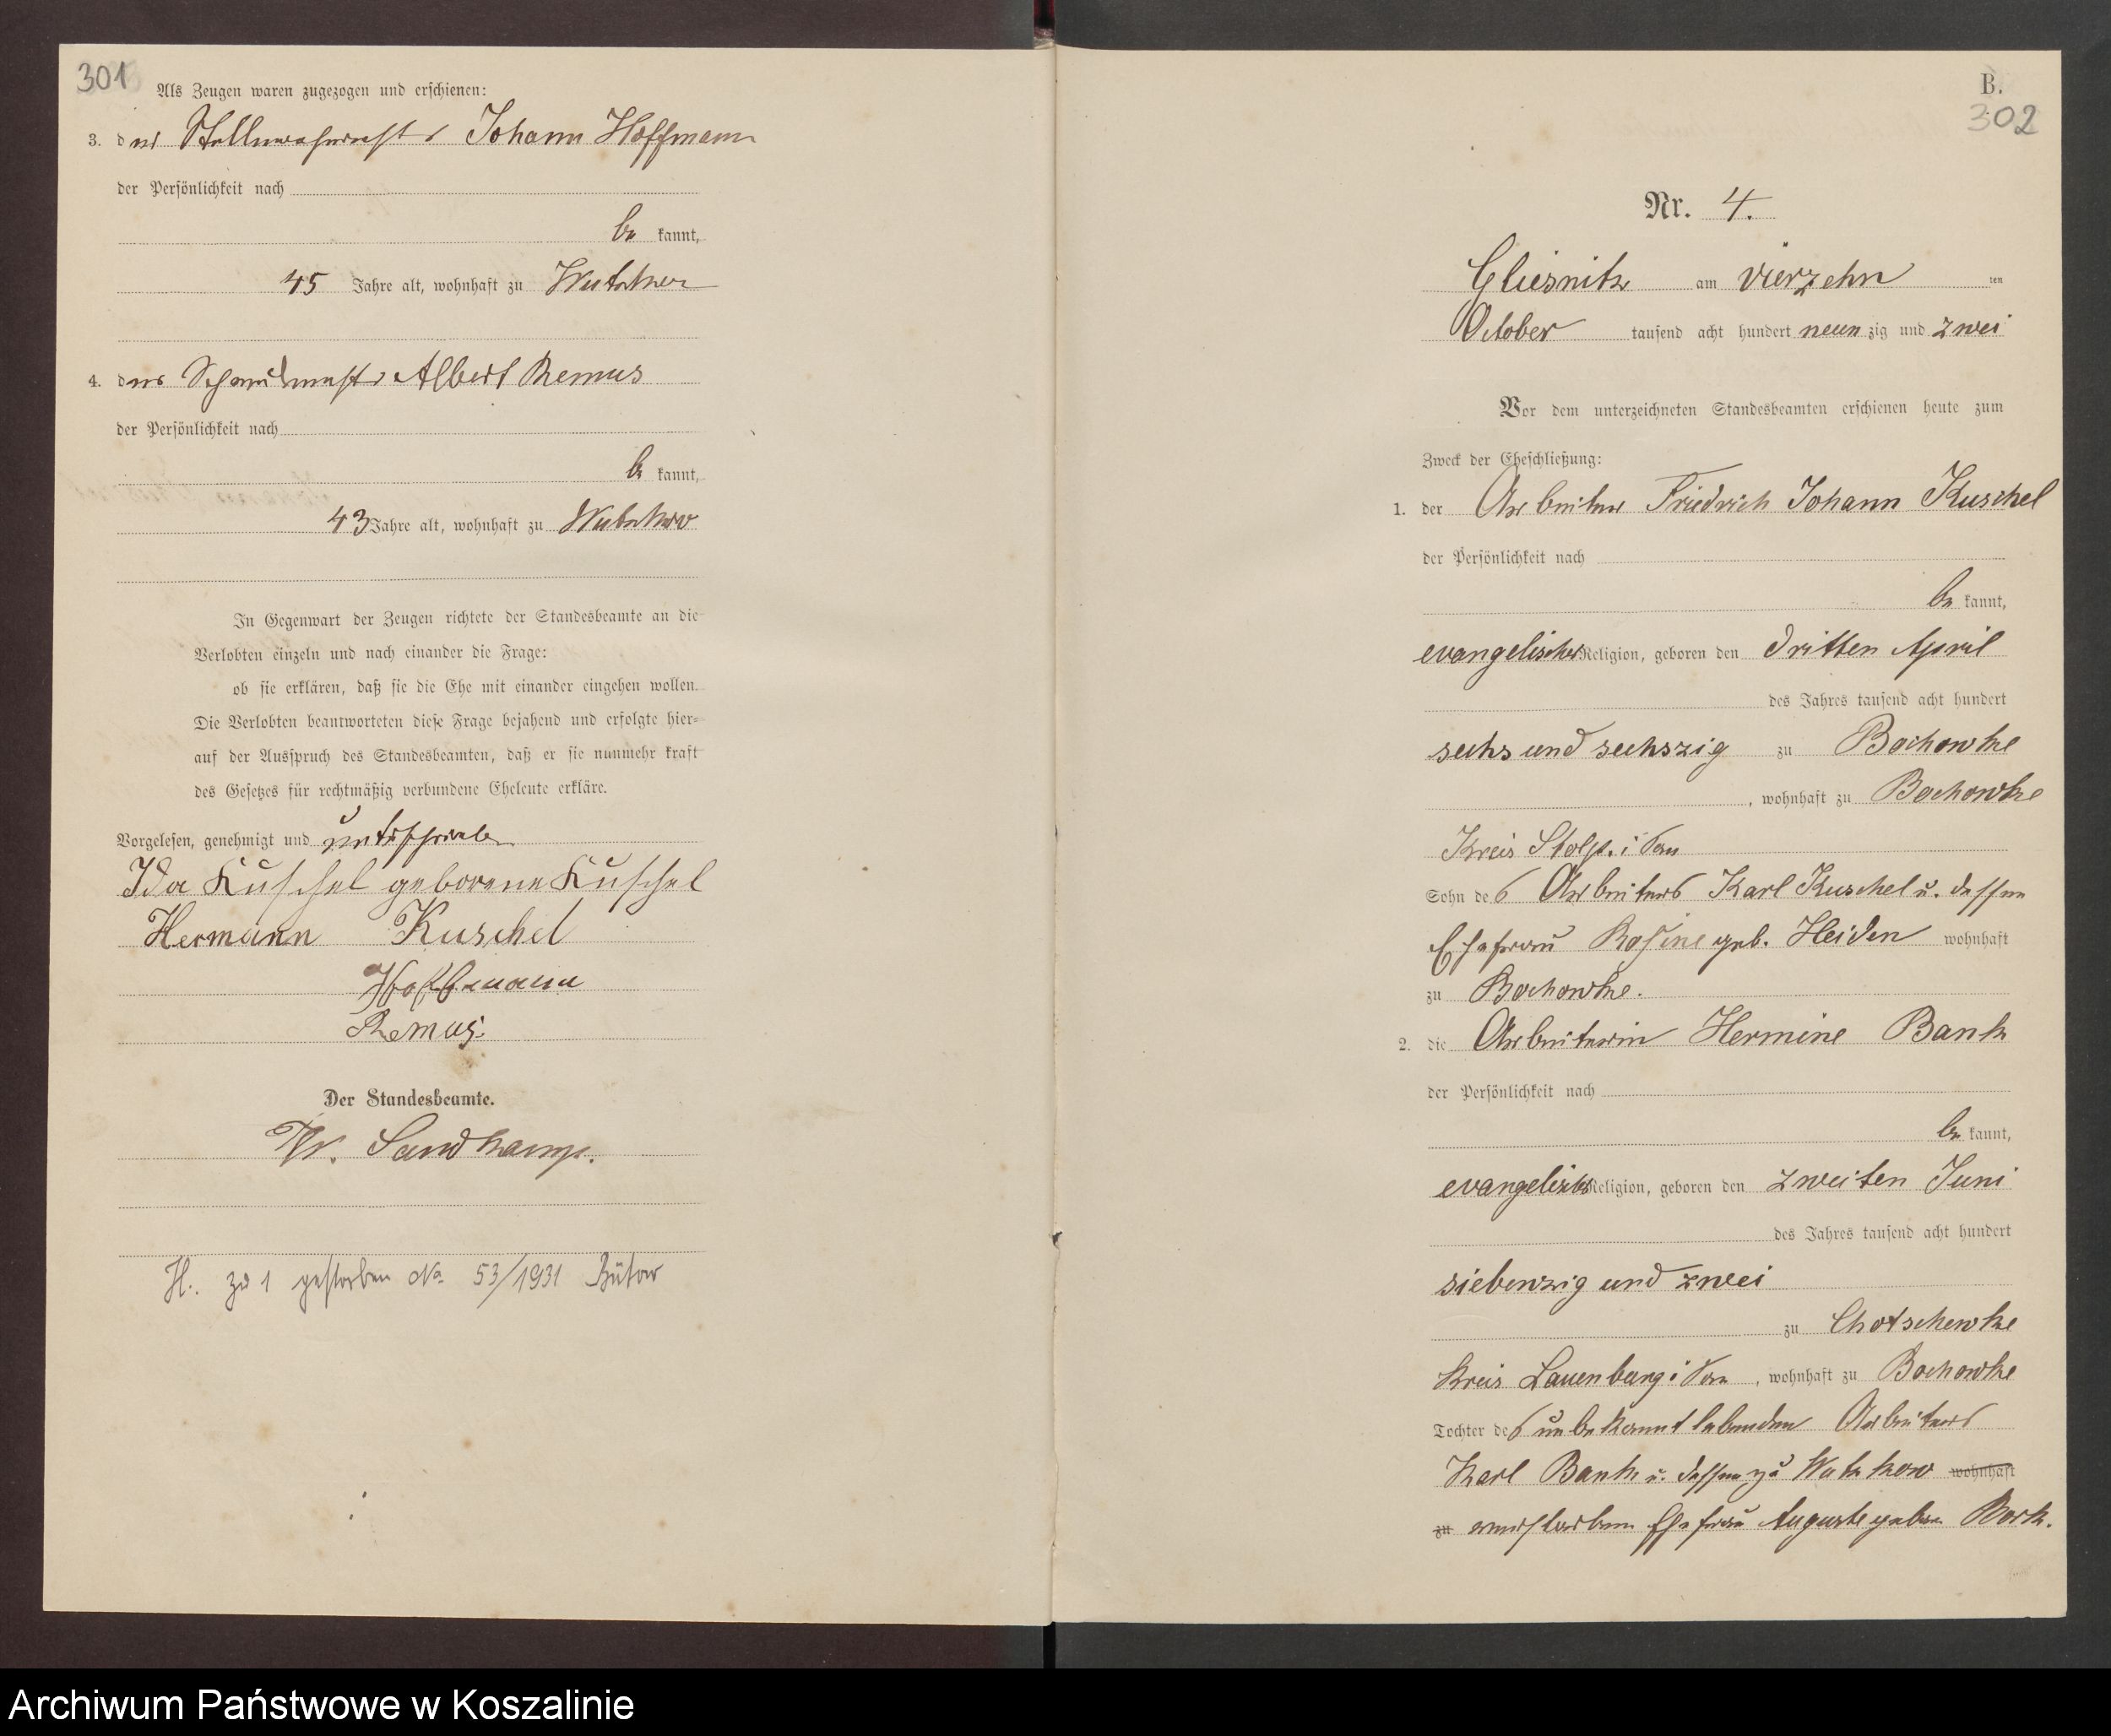 301
Als Zeugen waren zugezogen und erschienen:
3. der Johann Hoffmann
der Persönlichkeit nach
be kannt,
45 Jahre alt, wohnhaft zu Wutzkow
4. der Albert Remus
der Persönlichkeit nach
be kannt,
43 Jahre alt, wohnhaft zu Wutzkow
In Gegenwart der Zeugen richtete der Standesbeamte an die
Verlobten einzeln und nach einander die Frage:
ob sie erklären, daß sie die Ehe mit einander eingehen wollen.
Die Verlobten beantworteten diese Frage bejahend und erfolgte hier=
auf der Ausspruch des Standesbeamten, daß er sie nunmehr kraft
des Gesetzes für rechtmäßig verbundene Eheleute erkläre.
Vorgelesen, genehmigt und unterschrieben
Ida Kuschel geborene Kuschel
Hermann Kuschel
Hoffmann
Remus.
Der Standesbeamte.
Sandkamp.
H. zu 1 gestorben No 53/1931 Bütow
B.
302
Nr. 4.
Gliesnitz am vierzehn ten
October tausend acht hundert neun zig und zwei
Vor dem unterzeichneten Standesbeamten erschienen heute zum
Zweck der Eheschließung:
1. der Arbeiter Friedrich Johann Kuschel
der Persönlichkeit nach
be kannt,
evangelischer Religion, geboren den dritten April
des Jahres tausend acht hundert
sechs und sechszig zu Bochowke
, wohnhaft zu Bochowke
Kreis Stolp i Pom
Sohn des Arbeiters Karl Kuschel u. dessen
Ehefrau Rosine geb. Heiden wohnhaft
zu Bochowke.
2. die Arbeiterin Hermine Bank
der Persönlichkeit nach
be kannt,
evangelischer Religion, geboren den zweiten Juni
des Jahres tausend acht hundert
siebenzig und zwei
zu Chotschewke
Kreis Lauenburg i Pom , wohnhaft zu Bochowke
Tochter des unbekannt lebenden Arbeiters
Karl Bank u. dessen zu Wutzkow wohnhaft
zu verstorbenen Ehefrau Auguste geborn Bork.
Archiwum Państwowe w Koszalinie